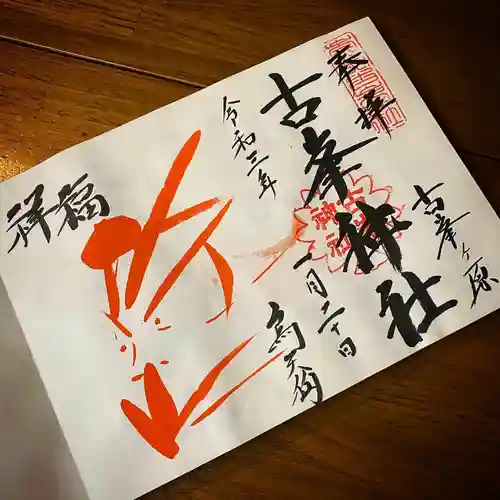 奉拝
古峯ヶ原
古峯神社
令和三年
一月二十日
祥福